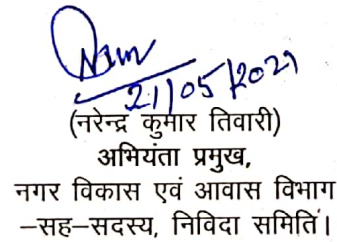 21/05/2021
(नरेन्द्र कुमार तिवारी)
अभियंता प्रमुख,
नगर विकास एवं आवास विभाग
–सह–सदस्य, निविदा समिति।